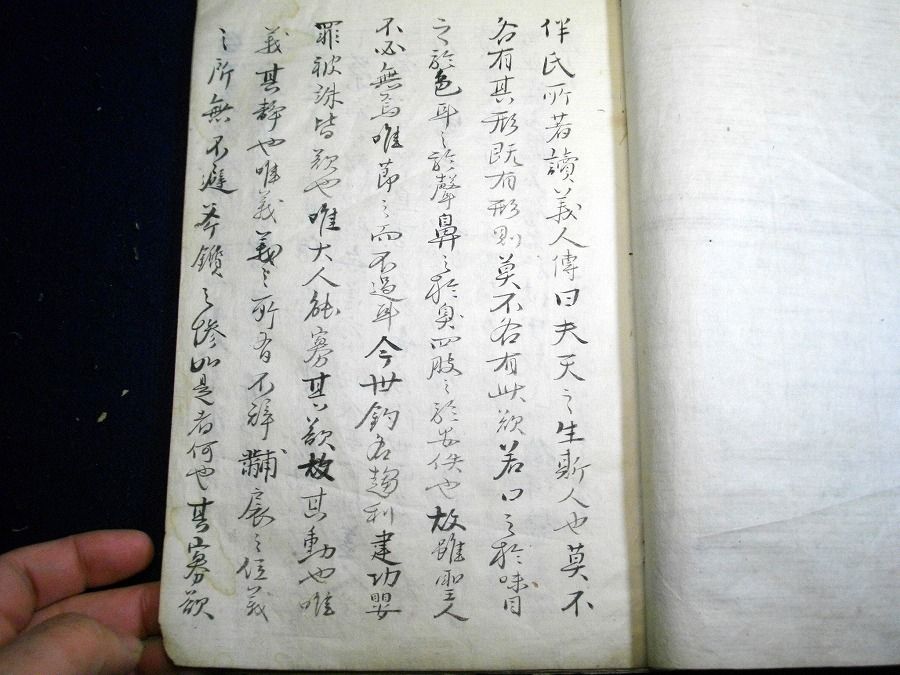 伴氏所著讀義人傳曰夫天之生斯人也莫不
各有其形既有形則莫不各有此欲若口之於味目
之於色耳之於聲鼻之於臭四肢之於安佚也故雖聖人
不必無焉唯節之而不過耳今世釣名趨利建功嬰
罪被誅皆欲也唯大人能寡其欲故其動也唯
義其靜也唯義義之所有不辭黼扆之位義
之所無不避斧鑕之慘如是者何也其寡欲